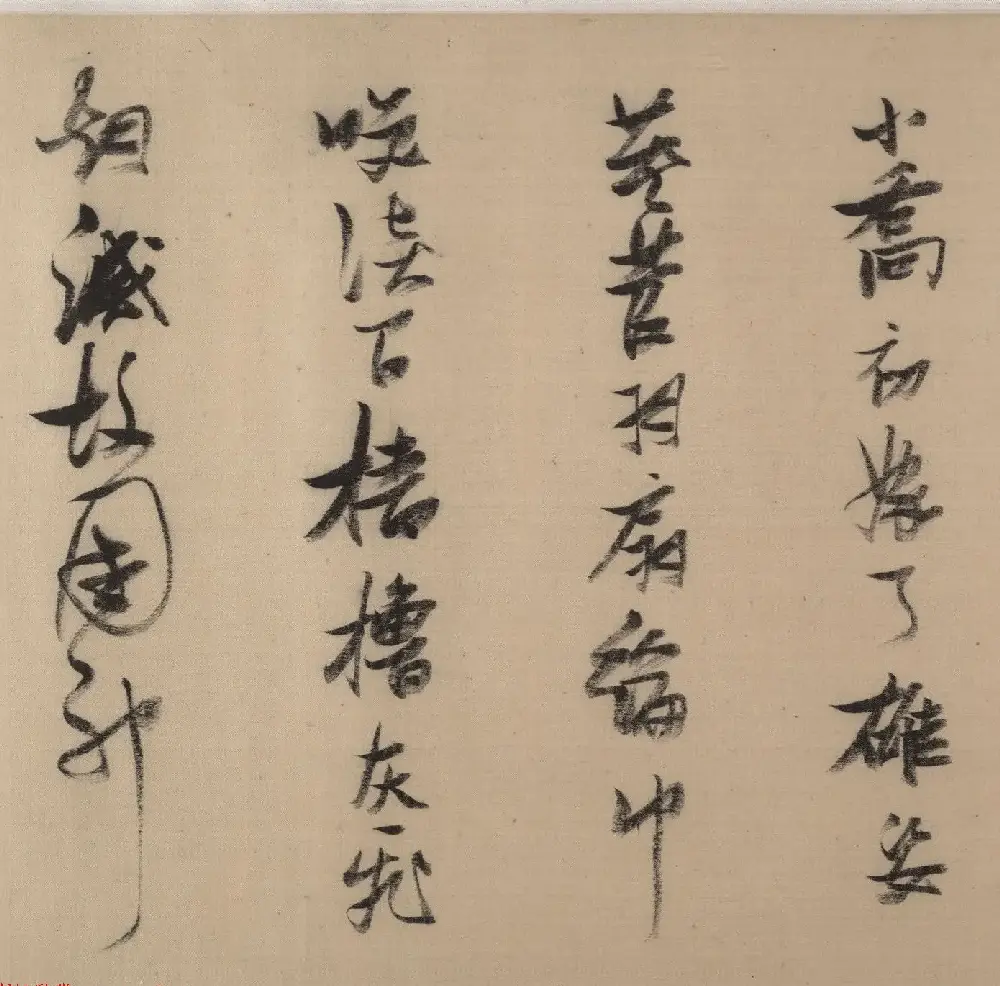 小喬初嫁了雄姿
英發羽扇綸巾
咲談間檣櫓灰飛
烟滅故國神